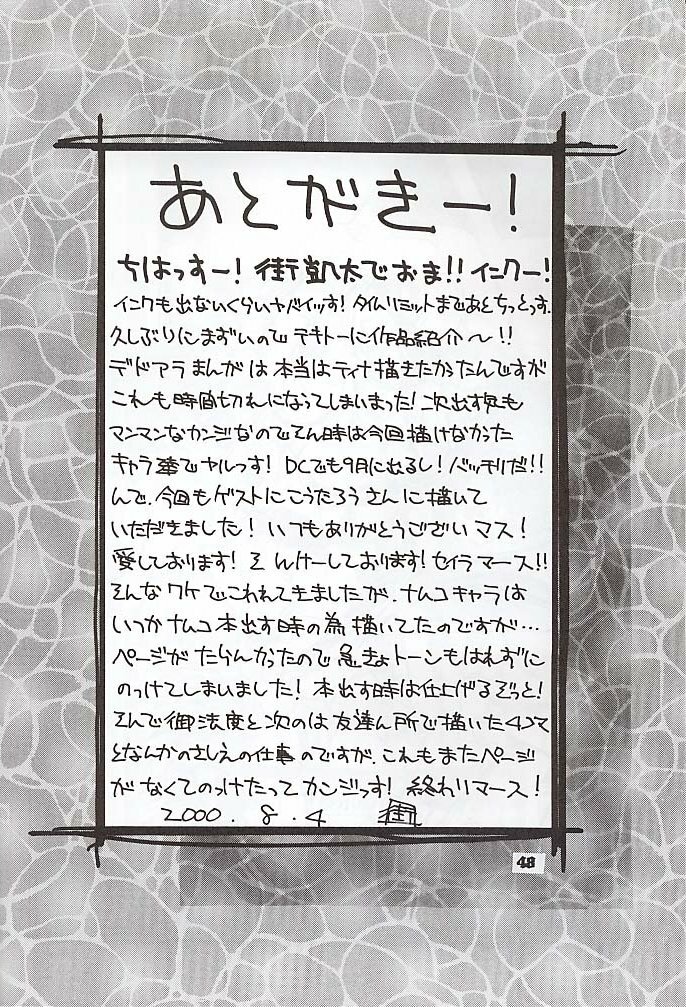 あとがきー!
ちはっすー! 街凱太でおま!! イニクー!
インクも出ないくらいヤバイッす! タイムリミットまであとちっとっす.
久しぶりにまずいので テキトーに作品紹介〜!!
デドアラまんがは本当はティナ描きたかったんですが
これも時間切れになってしまいまった! 次出す気も
マンマンなカンジなのでそん時は今回描けなかった
キャラ達でヤルっす! DCでも9月に出るし! バッチリだ!!
んで、今回もゲストにこうたろうさんに描いて
いただきました! いつもありがとうございマス!
愛しております! そんけーしております! セイラマース!!
そんなワケでこわれてきましたが、ナムコキャラは
いつかナムコ本出す時の為描いてたのですが…
ページがたらんかったので急きょトーンもはれずに
のっけてしまいました! 本出す時は仕上げるぞっと!
そんで御法度と次のは友達ん所で描いた4コマ
となんかのさしえの仕事のですが、これもまたページ
がなくてのっけたってカンジっす! 終わりマース!
2000.8.4 街
48